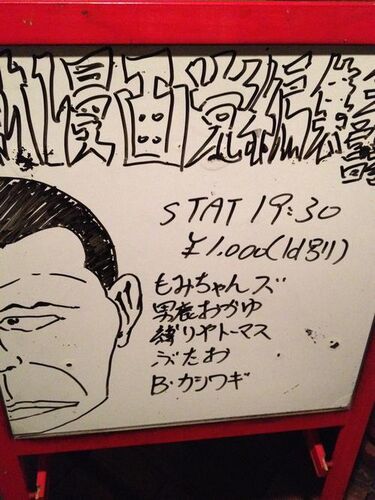 漫画
STAT 19:30
¥1,000(1d別)
もみちゃんズ
男鹿おかゆ
縛りやトーマス
ぶたお
B・カシワギ